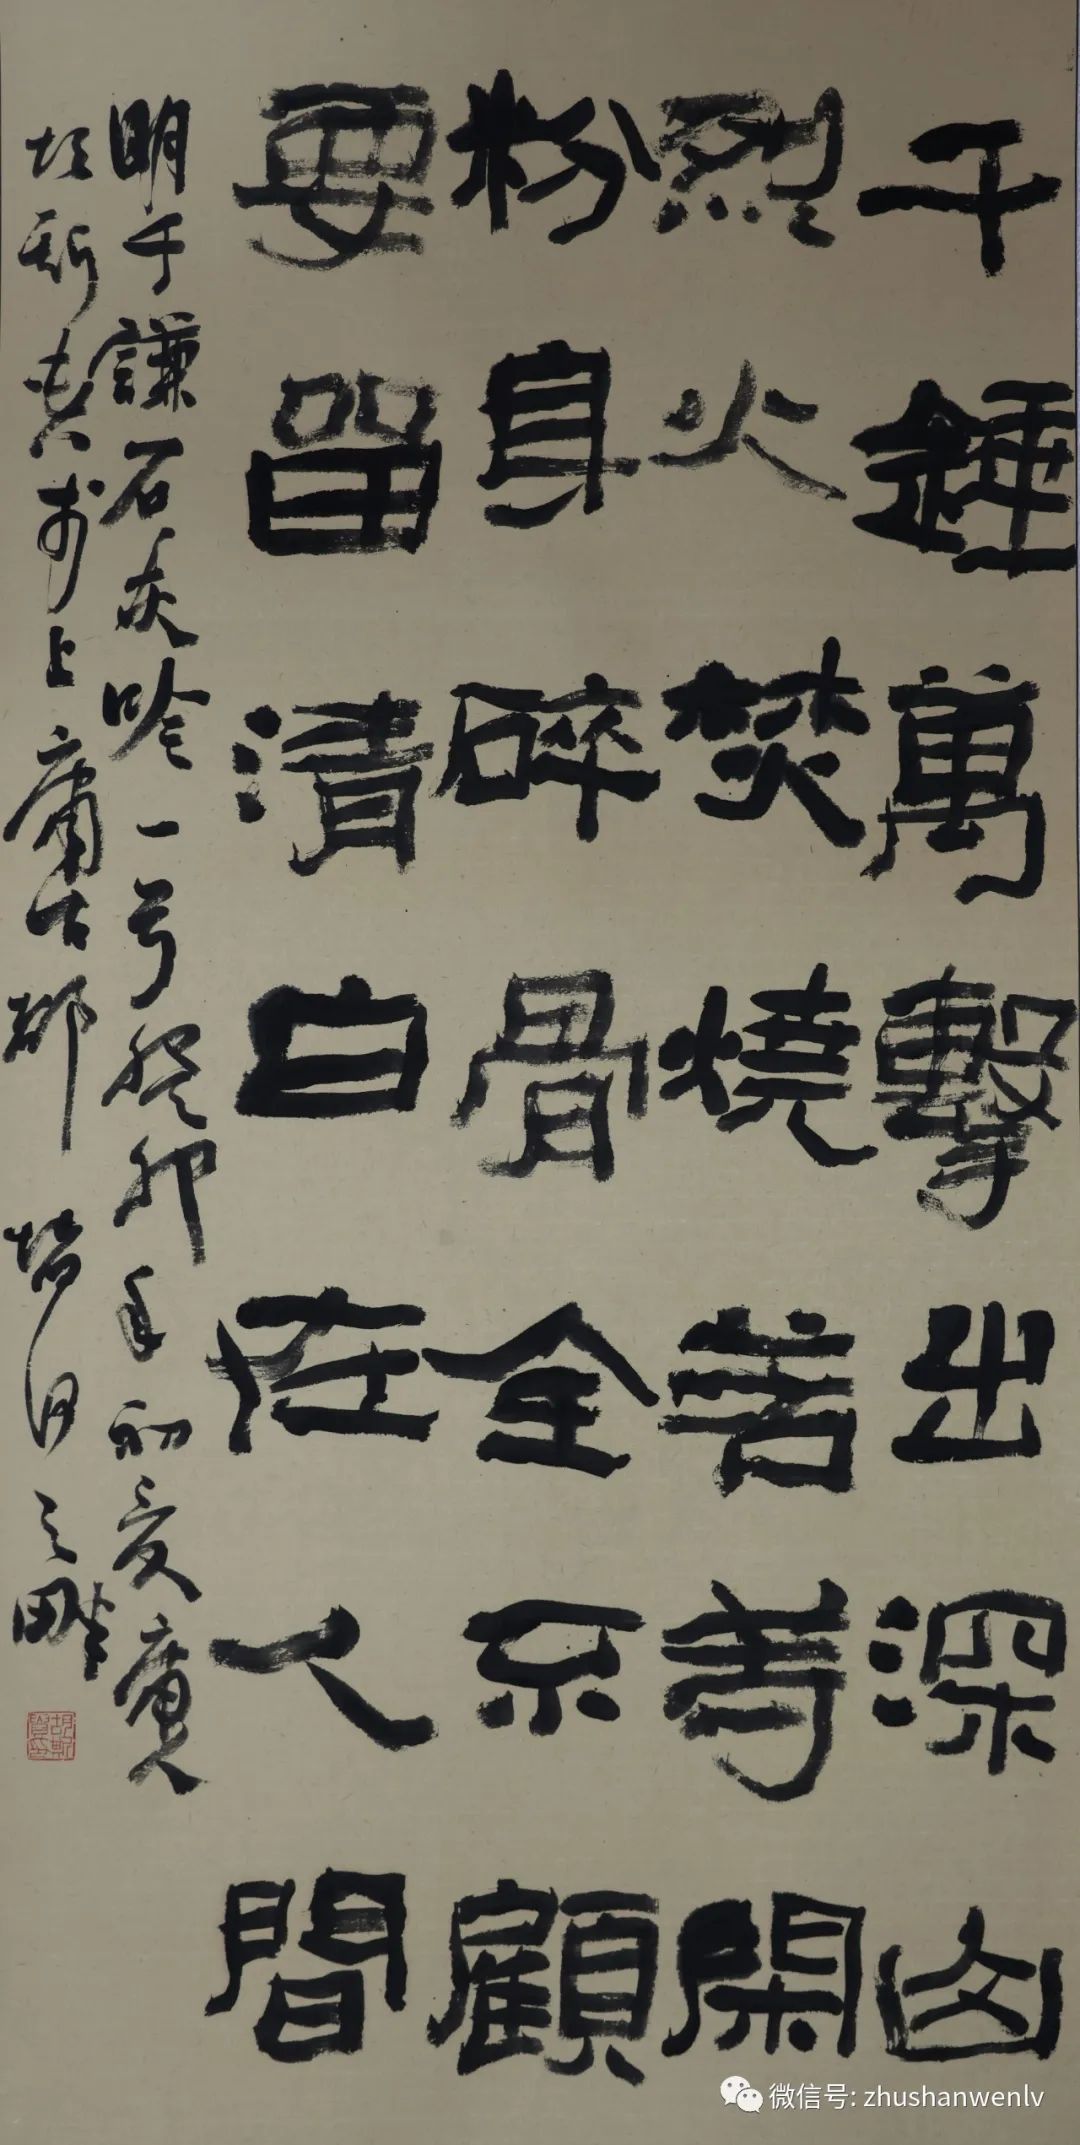 千錘萬擊出深山
烈火焚燒若等閑
粉身碎骨全不顧
要留清白在人間
明于謙石灰吟一首癸卯年初夏
胡斯賓於上庸古都 堵河之畔
微信号: zhushanwenlv